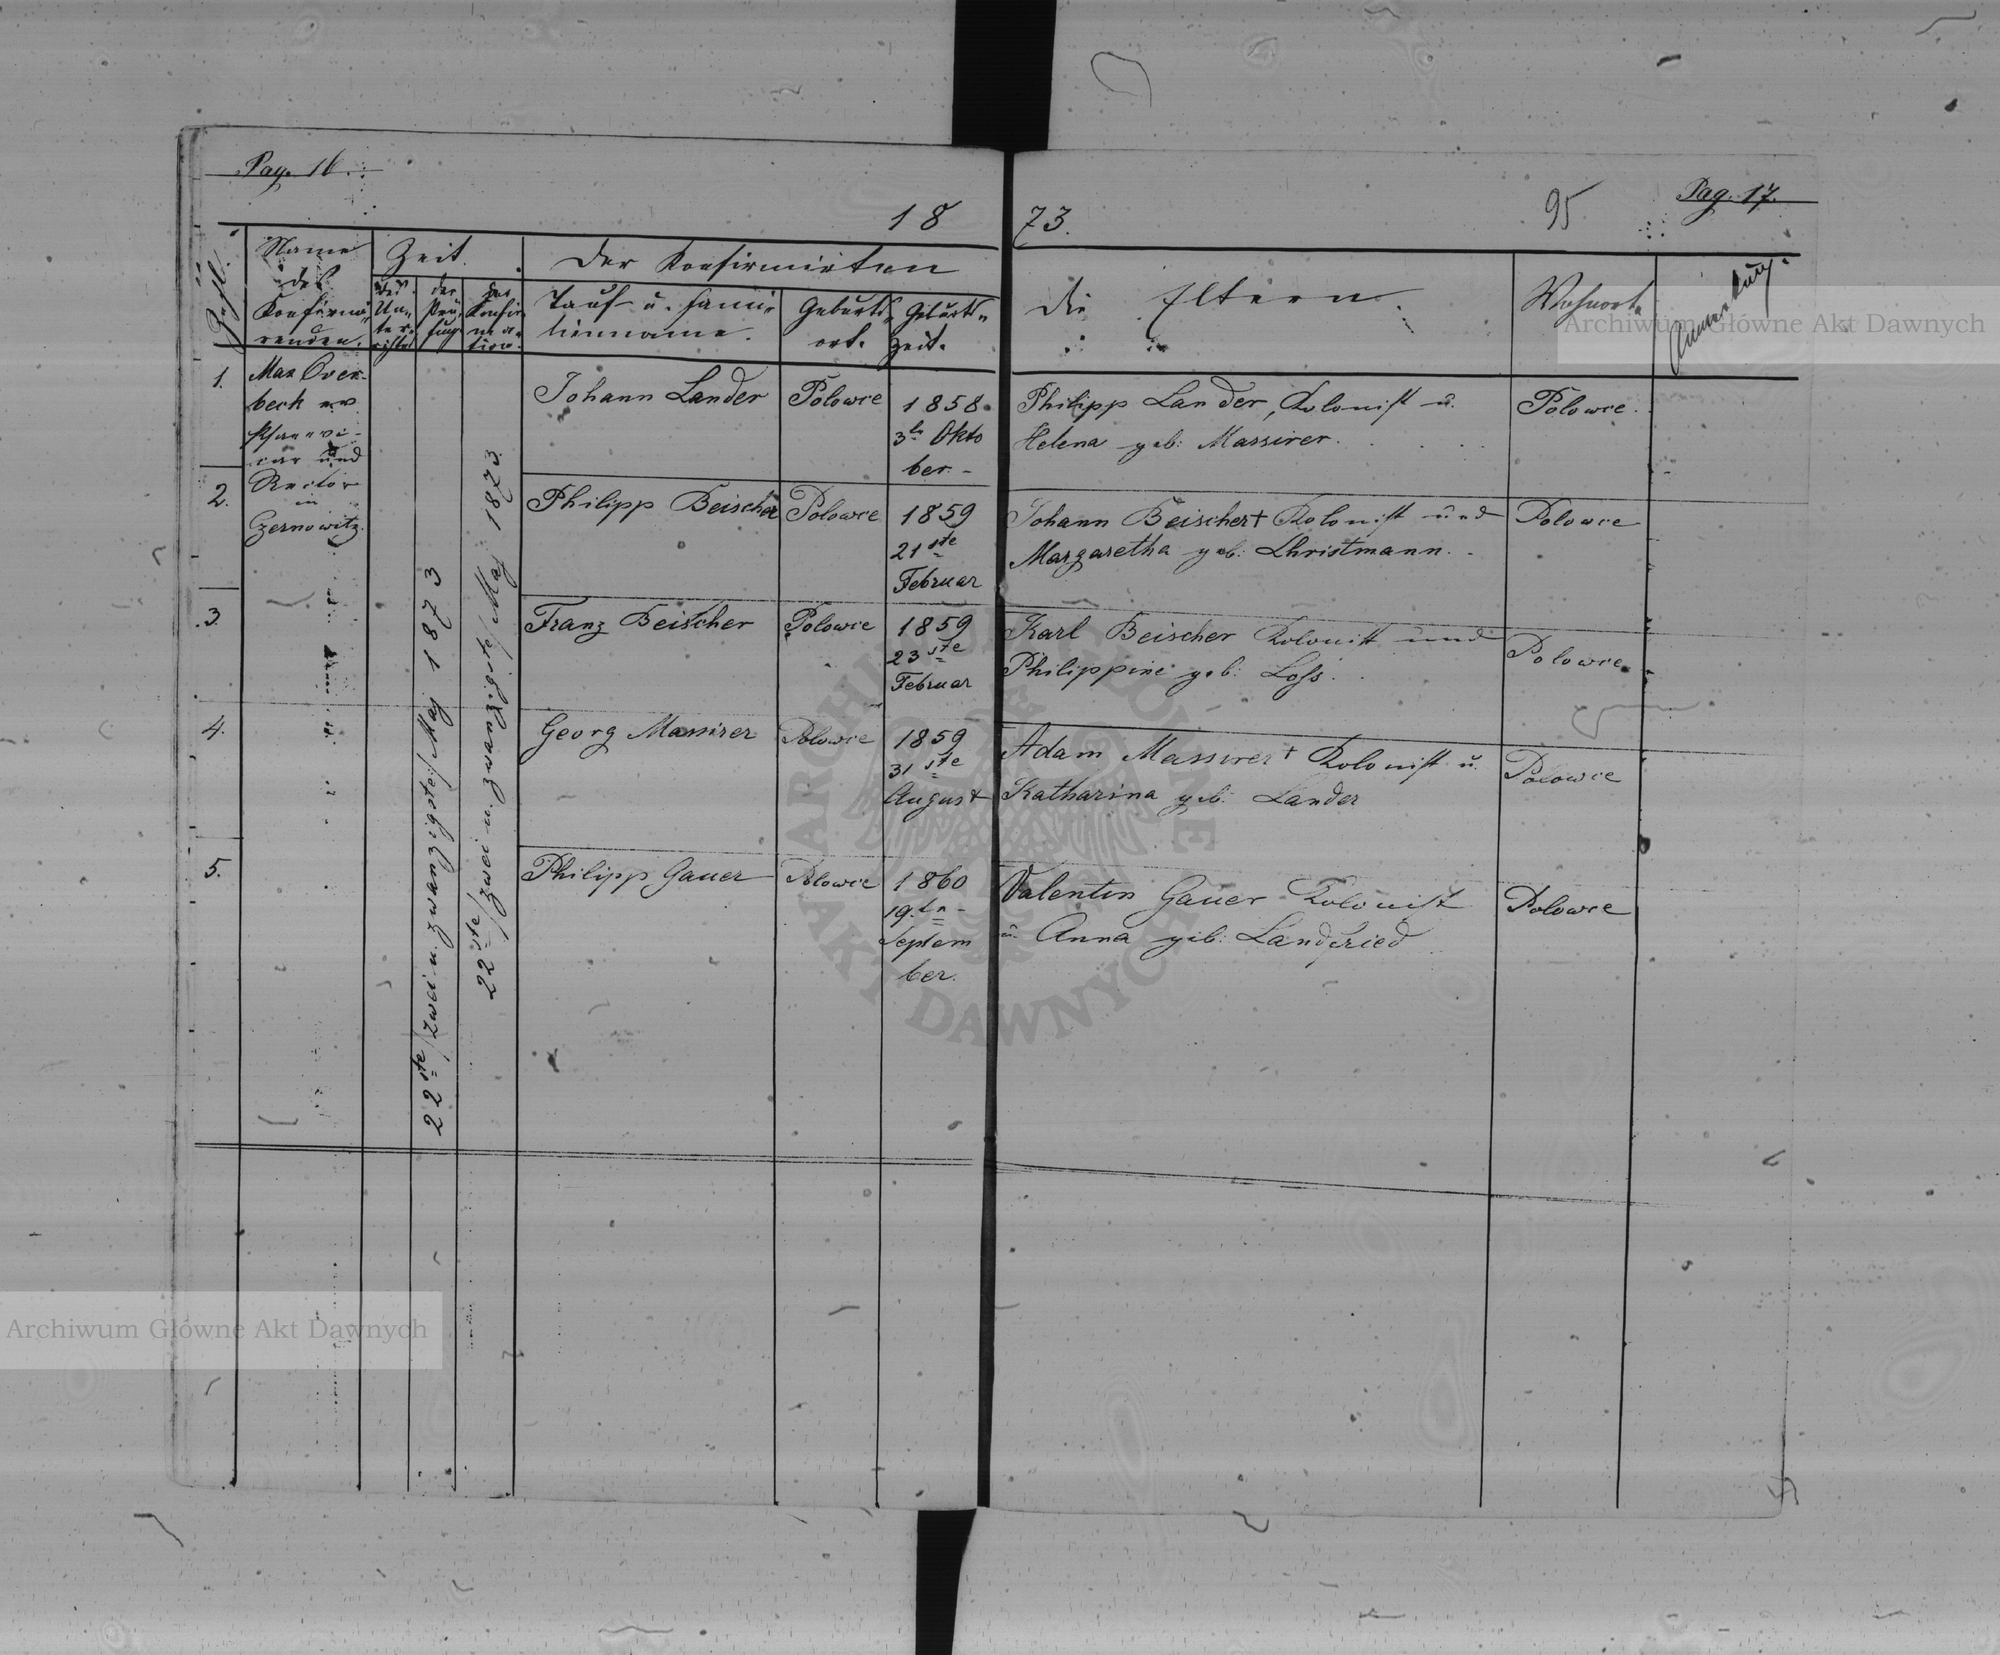 Pag. 16.
18
73.
95
Pag. 17.
Zahl.
Name
des
Konfirmi-
renden.
Zeit.
des
Un-
ter-
richts
der
Prü-
fung
der
Konfir-
ma-
tion.
Der Konfirmirten
Tauf- u. Fami-
lienname.
Geburts-
ort.
Geburts-
zeit.
Die Eltern.
Wohnort.
Anmerkung.
Max Over-
beck ev.
Pfarrvi-
car und
Rector
in
Czernowitz.
22ste /zwei u. zwanzigste/ May 1873
22ste /zwei u. zwanzigste/ May 1873.
1.
Johann Lander
Polowce
1858
3tn Okto
ber.
Philipp Lander, Kolonist u.
Helena geb: Massirer.
Polowce.
2.
Philipp Beischer
Polowce
1859
21ste
Februar
Johann Beischer † Kolonist und
Margaretha geb: Christmann.
Polowce
3.
Franz Beischer
Polowce
1859
23ste
Februar
Karl Beischer Kolonist und
Philippine geb: Loss.
Polowce
4.
Georg Massirer
Polowce
1859
31ste
August
Adam Massirer † Kolonist u.
Katharina geb: Lander
Polowce
5.
Philipp Gauer
Polowce
1860
19.tn
Septem
ber.
Valentin Gauer Kolonist
u. Anna geb: Landfried
Polowce
Archiwum Główne Akt Dawnych
Archiwum Główne Akt Dawnych
ARCHIWUM GŁÓWNE
AKT DAWNYCH